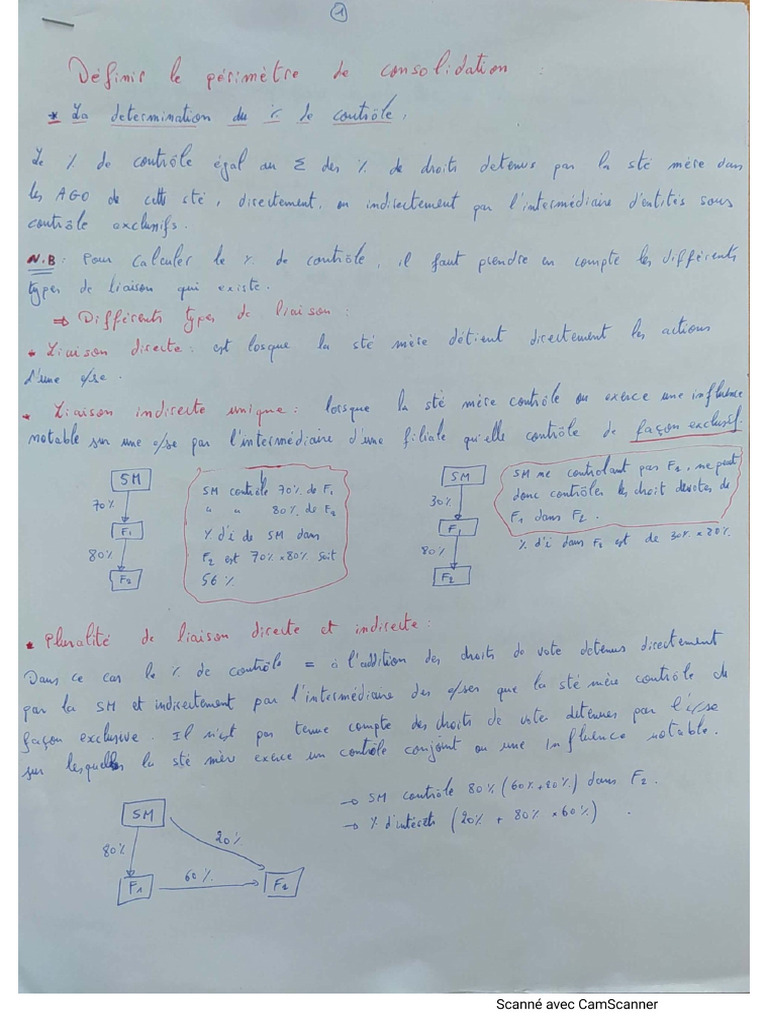 1
Définir le périmètre de consolidation :
* La determination du % de contrôle,
Le % de contrôle égal au Σ des % de droits detenus par la sté mère dans
les AGO de cette sté, directement, ou indirectement par l'intermédiaire d'entités sous
contrôle exclusifs.
N.B : Pour calculer le % de contrôle, il faut prendre en compte les différents
types de liaison qui existe.
⇒ Différents types de liaison :
• Liaison directe : est losque la sté mère détient directement les actions
d'une e/se.
• Liaison indirecte unique : lorsque la sté mère contrôle ou exerce une influence
notable sur une e/se par l'intermédiaire d'une filiale qu'elle contrôle de façon exclusif.
SM
70%
F1
80%
F2
SM contrôle 70% de F1
" " 80% de F2
% d'i de SM dans
F2 est 70% x 80% soit
56 %
SM
30%
F1
80%
F2
SM ne controlant pas F1, ne peut
donc contrôler les droit de votes de
F1 dans F2.
% d'i dans F2 est de 30% x 80%
• Pluralité de liaison directe et indirecte :
Dans ce cas le % de contrôle = à l'addition des droits de vote detenus directement
par la SM et indirectement par l'intermédiaire des e/ses que la sté mère contrôle de
façon exclusive. Il n'est pas tenue compte des droits de votes detenues par l'e/se
sur lesquelles la sté mère exerce un contrôle conjoint ou une influence notable.
SM
80%
20%
F1
60%
F2
→ SM contrôle 80% (60% + 20%) dans F2.
→ % d'intérêts (20% + 80% x 60%) .
Scanné avec CamScanner